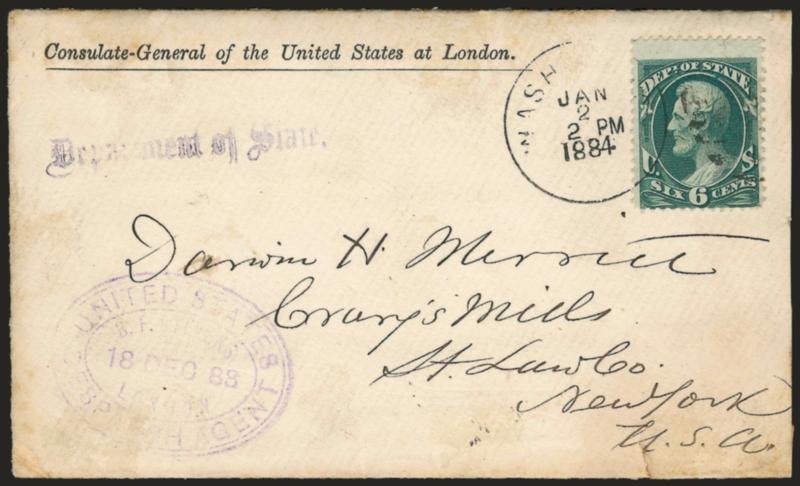 Consulate-General of the United States at London.
Department of State.
WASH
JAN
2
2 PM
1884
DEPT. OF STATE
U. S.
SIX 6 CENTS
Darwin H. Merritt
Crary's Mills
St. Law Co.
New York
U. S. A.
UNITED STATES
18 DEC 83
LONDON
DESPATCH AGENT